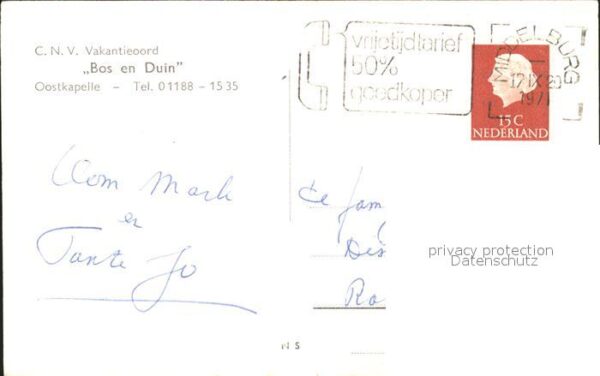 C. N. V. Vakantieoord
„Bos en Duin"
Oostkapelle – Tel. 01188 – 1535
vrijetijdtarief
50%
goedkoper
MIDDELBURG
17 IX
1971
15 C
NEDERLAND
Oom Mark
en
Tante Jo
Fam
Des
Ro
privacy protection
Datenschutz
N 5